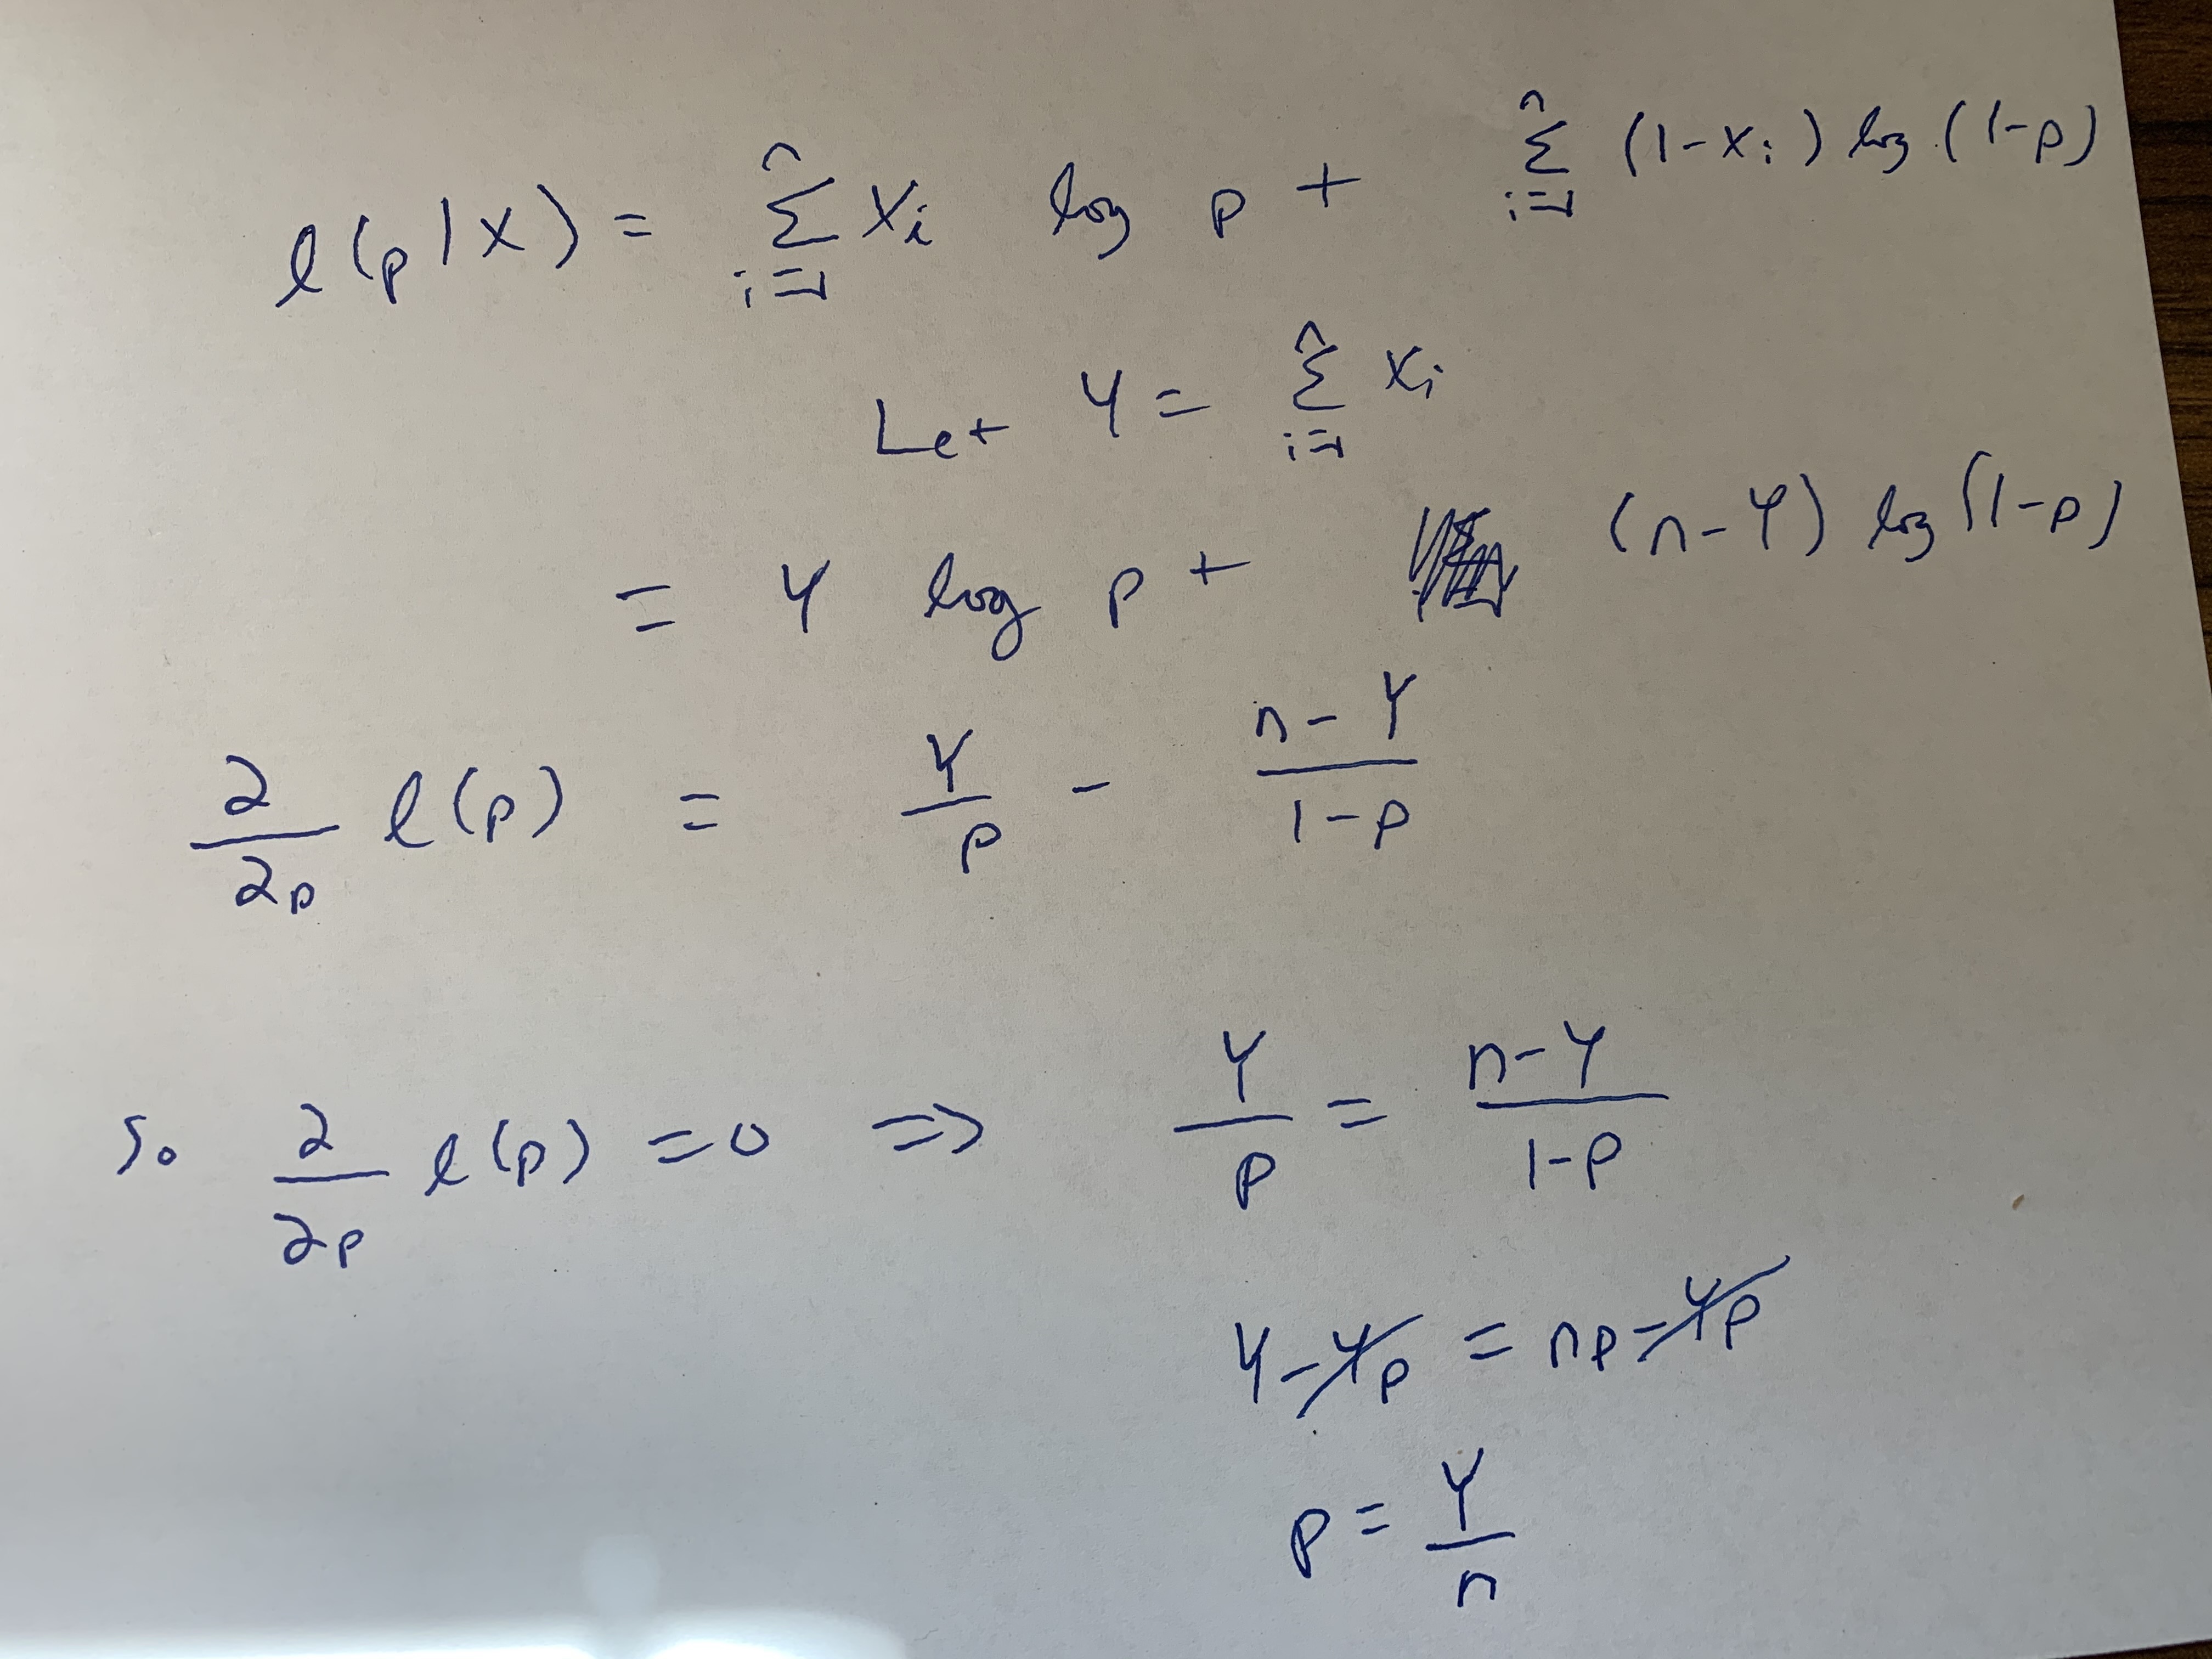 ℓ(p|X) = ∑_{i=1}^{n} X_i log p + ∑_{i=1}^{n} (1-X_i) log (1-p)
Let Y = ∑_{i=1}^{n} X_i
= Y log p + (n-Y) log (1-p)
∂/∂p ℓ(p) = Y/p - (n-Y)/(1-p)
So ∂/∂p ℓ(p) = 0 ⇒ Y/p = (n-Y)/(1-p)
Y - Yp = np - Yp
p = Y/n